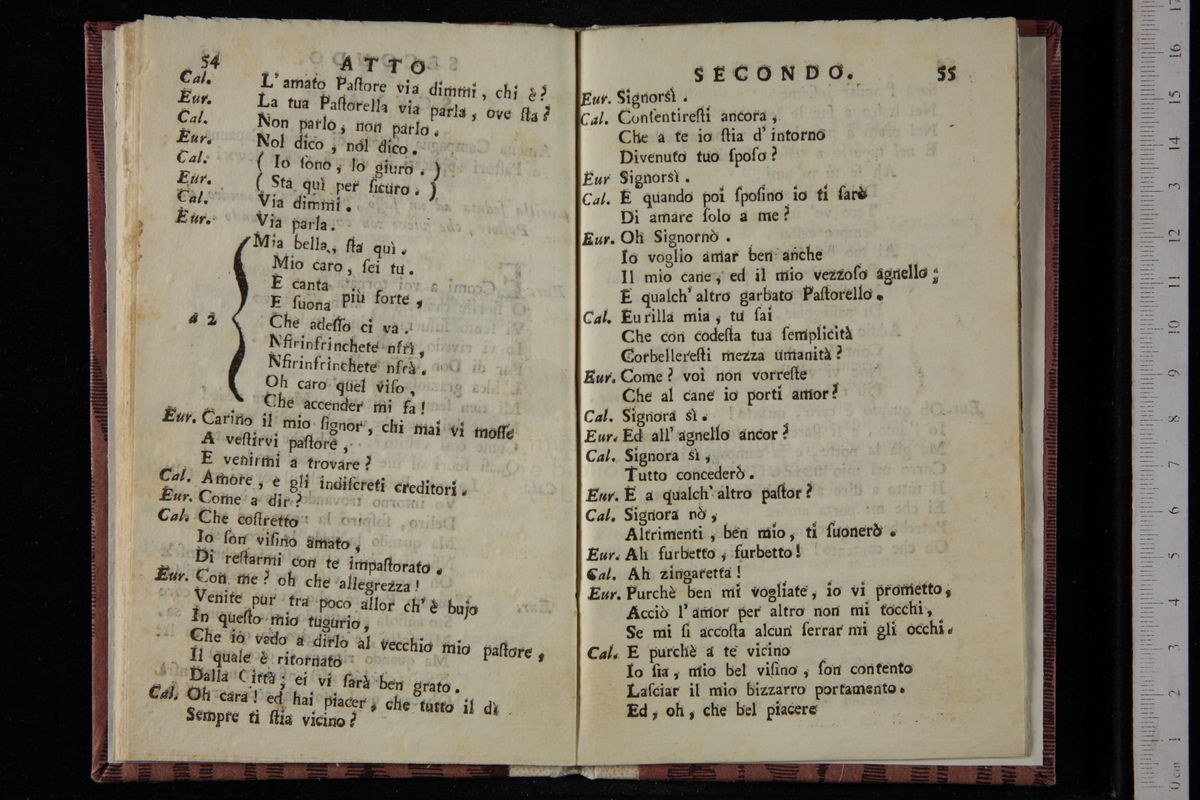 54
ATTO
Cal. L'amato Paſtore via dimmi, chi è?
Eur. La tua Paſtorella via parla, ove ſta?
Cal. Non parlo, non parlo.
Eur. Nol dico, nol dico.
Cal. ( Io ſono, lo giuro. )
Eur. ( Sta quì per ſicuro. )
Cal. Via dimmi.
Eur. Via parla.
Mia bella, ſta quì.
Mio caro, ſei tu.
E canta
E ſuona più forte,
a 2 Che adeſſo ci va.
Nfirinfrinchete nfrì,
Nfirinfrinchete nfrà.
Oh caro quel viſo,
Che accender mi fa!
Eur. Carino il mio ſignor, chi mai vi moſſe
A veſtirvi paſtore,
E venirmi a trovare?
Cal. Amore, e gli indiſcreti creditori.
Eur. Come a dir?
Cal. Che coſtretto
Io ſon viſino amato,
Di reſtarmi con te impaſtorato.
Eur. Con me? oh che allegrezza!
Venite pur tra poco allor ch'è bujo
In queſto mio tugurio,
Che io vado a dirlo al vecchio mio paſtore,
Il quale è ritornato
Dalla Città; ei vi ſarà ben grato.
Cal. Oh cara! ed hai piacer, che tutto il dì
Sempre ti ſtia vicino?
SECONDO.
55
Eur. Signorsì.
Cal. Conſentireſti ancora,
Che a te io ſtia d'intorno
Divenuto tuo ſpoſo?
Eur Signorsì.
Cal. E quando poi ſpoſino io ti ſarò
Di amare ſolo a me?
Eur. Oh Signornò.
Io voglio amar ben anche
Il mio cane, ed il mio vezzoſo agnello;
E qualch'altro garbato Paſtorello.
Cal. Eurilla mia, tu ſai
Che con codeſta tua ſemplicità
Corbellereſti mezza umanità?
Eur. Come? voi non vorreſte
Che al cane io porti amor?
Cal. Signora sì.
Eur. Ed all'agnello ancor?
Cal. Signora sì,
Tutto concederò.
Eur. E a qualch'altro paſtor?
Cal. Signora nò,
Altrimenti, ben mio, ti ſuonerò.
Eur. Ah furbetto, furbetto!
Cal. Ah zingaretta!
Eur. Purchè ben mi vogliate, io vi prometto,
Acciò l'amor per altro non mi tocchi,
Se mi ſi accoſta alcun ſerrar mi gli occhi.
Cal. E purchè a te vicino
Io ſia, mio bel viſino, ſon contento
Laſciar il mio bizzarro portamento.
Ed, oh, che bel piacere
0 cm 1 2 3 4 5 6 7 8 9 10 11 12 13 14 15 16 17